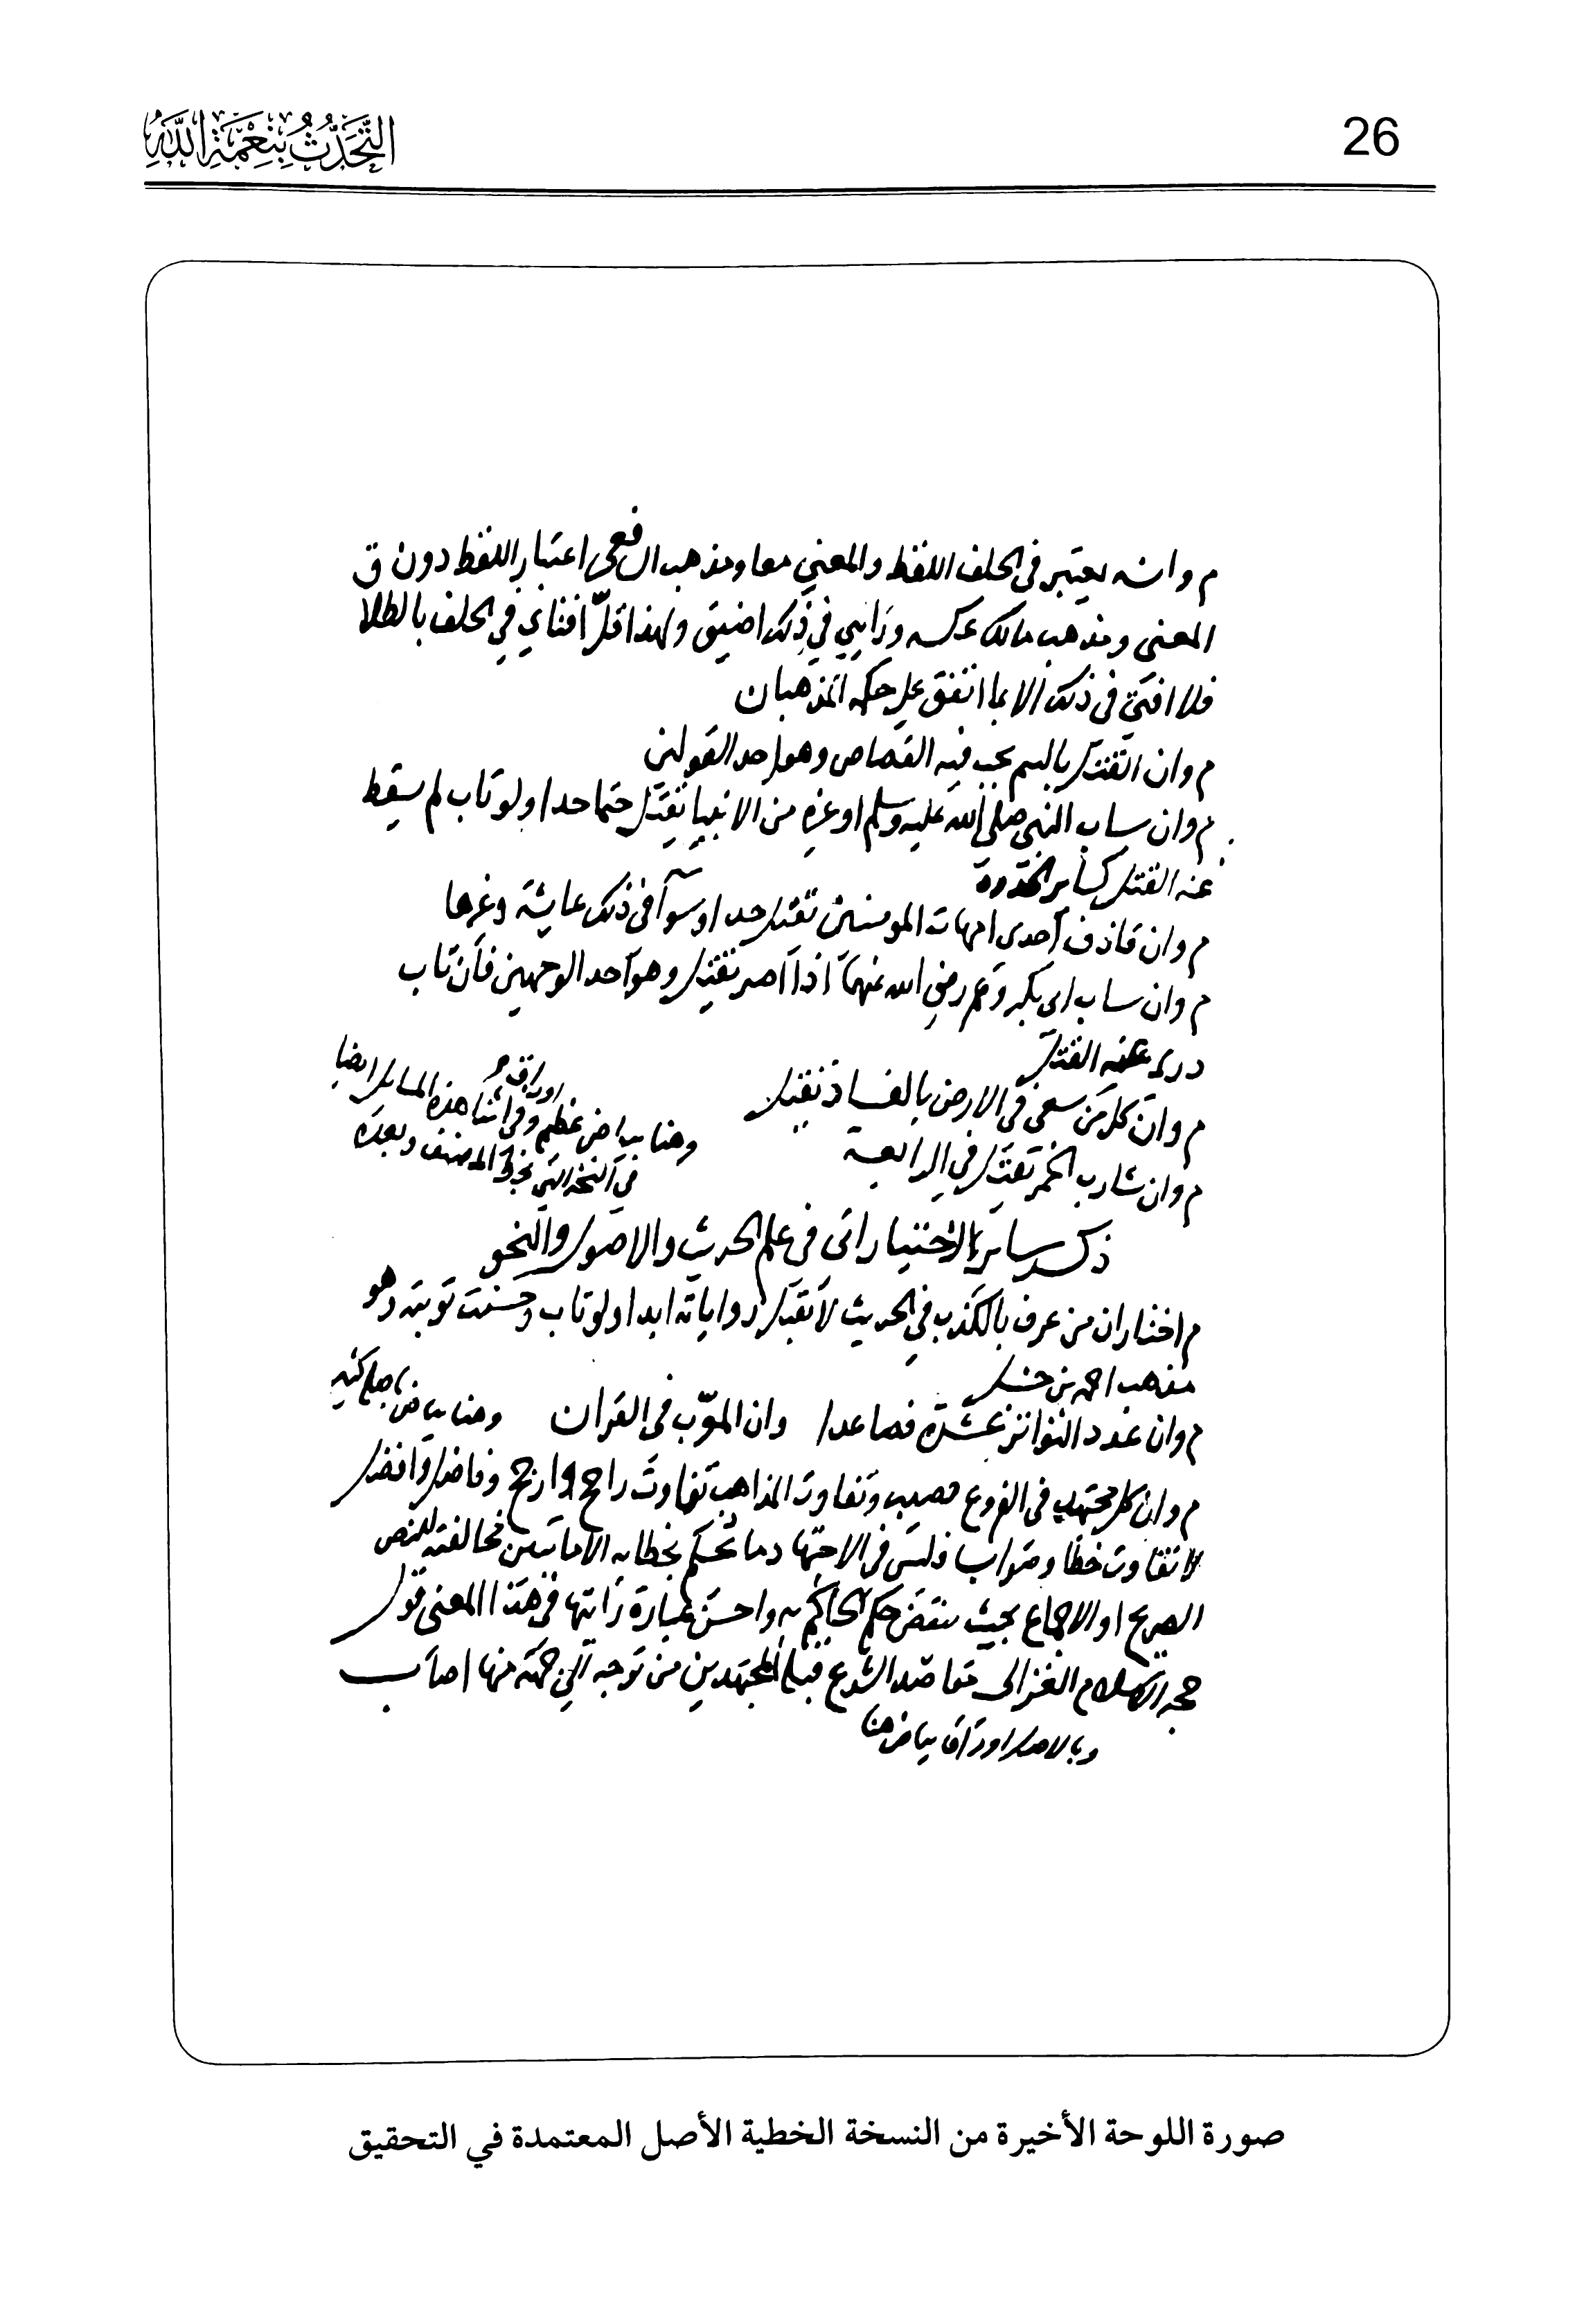 26
التَّحَدُّثُ بِنِعْمَةِ اللَّهِ
م وانه يعتبر فى الحلف اللفظ والمعنى معا ومذهب الشافعى اعتبار اللفظ دون ق
المعنى ومذهب مالك عكسه ورايي في ذلك اضيق ولهذا قلّ افتاي في الحلف بالطلا
فلا افتى فى ذلك الا بما اتفق على حكمه المذهبان
م وان القتل بالسم يجب فيه القصاص وهو احد القولين
م وان ساب النبى صلى الله عليه وسلم او غيره من الانبيا يقتل حتما حدا ولو تاب لم يسقط
عنه القتل كساير الحدود
م وان قاذف احدى امهات المومنين يقتل حدا وسوآ فى ذلك عايشة وغيرها
م وان ساب ابى بكر وعمر رضى الله عنهما اذا اصر يقتل وهو احد الوجهين فان تاب
درى عنه القتل
م وان كل من سعى فى الارض بالفساد يقتل
م وان شارب الخمر يقتل فى الرابعة
وهنا بياض عظيم اوراق وفى اثنا هذه المسايل ايضا
فى النسخة التى بخط المصنف وبعده
ذكر ساير الاختياراتى فى علم الحديث والاصول والنحو
م اختار ان من عرف بالكذب فى الحديث لا تقبل رواياته ابدا ولو تاب وحسنت توبته وهو
مذهب احمد بن حنبل
م وان عدد التواتر عشرة فصاعدا وان المعرّب فى القران وهنا بياض باصله كثير
م وان كل مجتهد فى الفروع مصيب وتفاوت المذاهب تفاوت راجح وارجح وفاضل وافضل
لا تفاوت خطا وصواب فليس فى الاجتهاد ما نحكم بخطايه الا ما تبين مخالفته للنص
الصريح او الاجماع بحيث ينقض حكم الحاكم به واحسن عبارة رايتها فى هذا المعنى قول
حجة الاسلام الغزالى مقاصد الشرع قبلة المجتهدين من توجه الى جهة منها اصاب
وبالاصل اوراق بياض هنا
صورة اللوحة الأخيرة من النسخة الخطية الأصل المعتمدة في التحقيق